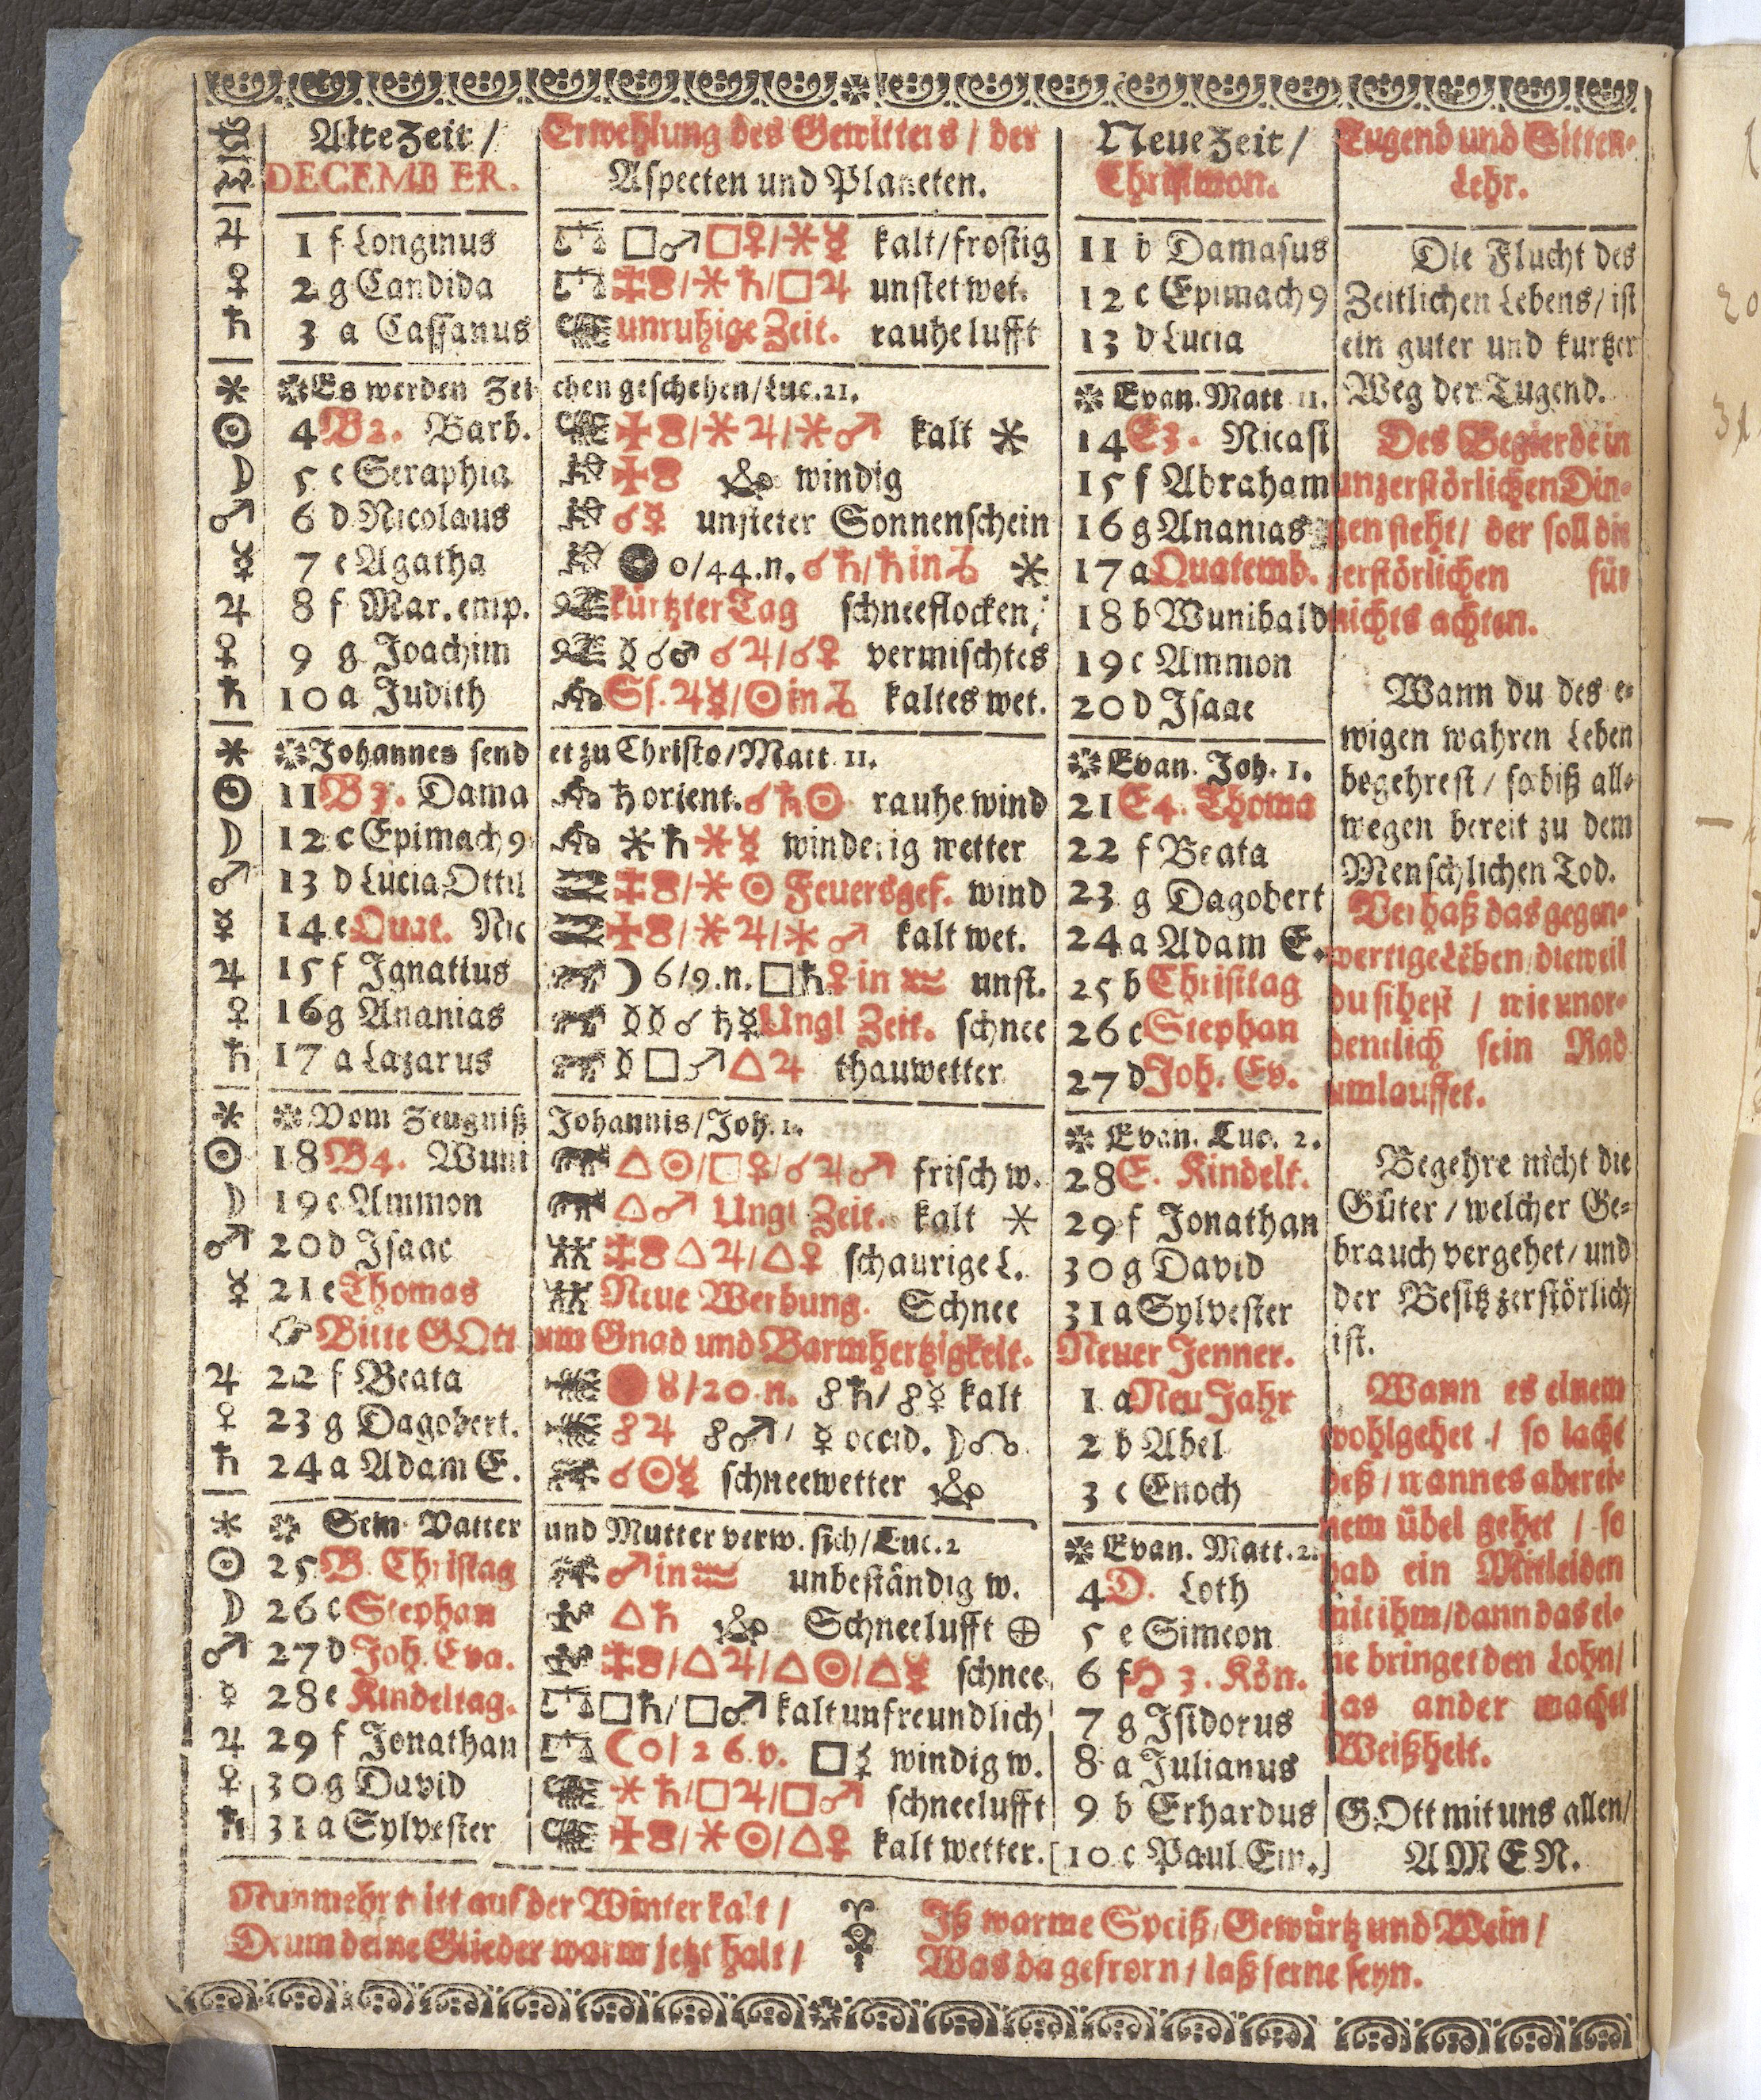 Alte Zeit /
DECEMBER.
Erwehlung des Gewitters / der
Aspecten und Planeten.
Neue Zeit /
Christmon.
Tugend und Sitten-
Lehr.
♃ 1 f Longinus ♎ □♂□♀/⚹☿ kalt/frostig
♀ 2 g Candida ♎ /⚹♄/□♃ unstet wet.
♄ 3 a Cassanus unruhige Zeit. rauhe lufft
⚹ Es werden Zei chen geschehen/Luc. 21.
☉ 4 B2. Barb. /⚹♃/⚹♂ kalt ⚹
☽ 5 c Seraphia windig
♂ 6 d Nicolaus ☌☿ unsteter Sonnenschein
☿ 7 e Agatha 0/44.n. ☌♄/♄ in ♑ ⚹
♃ 8 f Mar. emp. kürtzter Tag schneeflocken,
♀ 9 g Joachim ☿☌♂ ☌♃/☌♀ vermischtes
♄ 10 a Judith Ss. ♃☿/☉ in ♑ kaltes wet.
⚹ Johannes send et zu Christo/Matt. 11.
☉ 11 B3. Dama ♄ orient. ☌♄☉ rauhe wind
☽ 12 c Epimach9 ⚹♄⚹☿ winderig wetter
♂ 13 d Lucia Ottil /⚹☉ Feuersgef. wind
☿ 14 e Quat. Nic /⚹♃/⚹♂ kalt wet.
♃ 15 f Ignatius ☽ 6/9.n. □♄ ♀ in ♒ unst.
♀ 16 g Ananias ☌ ♄☿ Ungl Zeit. schnee
♄ 17 a Lazarus □♂△♃ thauwetter
⚹ Vom Zeugniß Johannis/Joh. 1.
☉ 18 B4. Wuni △☉/□♀/☌♃♂ frisch w.
☽ 19 c Ammon △♂ Ungl Zeit. kalt ⚹
♂ 20 d Isaac △♃/△♀ schaurige L.
☿ 21 e Thomas Neue Werbung. Schnee
☞ Bitte GOtt um Gnad und Barmhertzigkeit.
♃ 22 f Beata 8/20.n. ☍♄/☍☿ kalt
♀ 23 g Dagobert. ☍♃ ☍♂/ ☿ occid. ☽☊
♄ 24 a Adam E. ☌☉☿ schneewetter
⚹ Sein Vatter und Mutter verw. sich/Luc. 2
☉ 25 B. Christag ♂ in ♒ unbeständig w.
☽ 26 c Stephan △♄ Schneelufft ⊕
♂ 27 d Joh. Eva. /△♃/△☉/△☿ schnee
☿ 28 e Kindeltag. ♎ □♄/□♂ kalt unfreundlich
♃ 29 f Jonathan ♎ ☾ 0/26.v. □☿ windig w.
♀ 30 g David ⚹♄/□♃/□♂ schneelufft
♄ 31 a Sylvester /⚹☉/△♀ kalt wetter.
11 b Damasus
12 c Epimach9
13 d Lucia
Evan. Matt 11.
14 E3. Nicasi
15 f Abraham
16 g Ananias
17 a Quatemb.
18 b Wunibald
19 c Ammon
20 d Isaac
Evan. Joh. 1.
21 E4. Thoma
22 f Beata
23 g Dagobert
24 a Adam E.
25 b Christtag
26 c Stephan
27 d Joh. Ev.
Evan. Luc. 2.
28 E. Kindelt.
29 f Jonathan
30 g David
31 a Sylvester
Neuer Jenner.
1 a Neu Jahr
2 b Abel
3 c Enoch
Evan. Matt. 2.
4 D. Loth
5 e Simeon
6 f H 3. Kön.
7 g Isidorus
8 a Julianus
9 b Erhardus
[10 c Paul Ein.]
Die Flucht des
Zeitlichen Lebens/ist
ein guter und kurtzer
Weg der Tugend.
Des Begierde in
unzerstörlichen Din-
gen steht/ der soll die
zerstörlichen für
nichts achten.
Wann du des e-
wigen wahren Leben
begehrest/ so biß all-
wegen bereit zu dem
Menschlichen Tod.
Verhaß das gegen-
wertige Leben/dieweil
du sihest / wie unor-
dentlich sein Rad
umlauffet.
Begehre nicht die
Güter/welcher Ge-
brauch vergehet/und
der Besitz zerstörlich
ist.
Wann es einem
wohlgehet / so lacht
deß/wann es aber ei-
nem übel gehet / so
hab ein Mitleiden
mit ihm/dann das ei-
ne bringet den Lohn/
das ander machet
Weißheit.
GOtt mit uns allen/
AMEN.
Nunmehr tritt auf der Winter kalt /
Drum deine Glieder warm jetzt halt /
Iß warme Speiß/Gewürtz und Wein /
Was da gefrorn / laß ferne seyn.